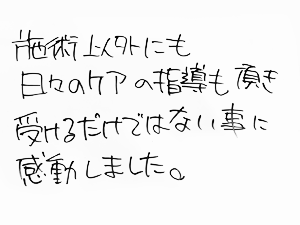 施術以外にも
日々のケアの指導も頂き
受けるだけではない事に
感動しました。